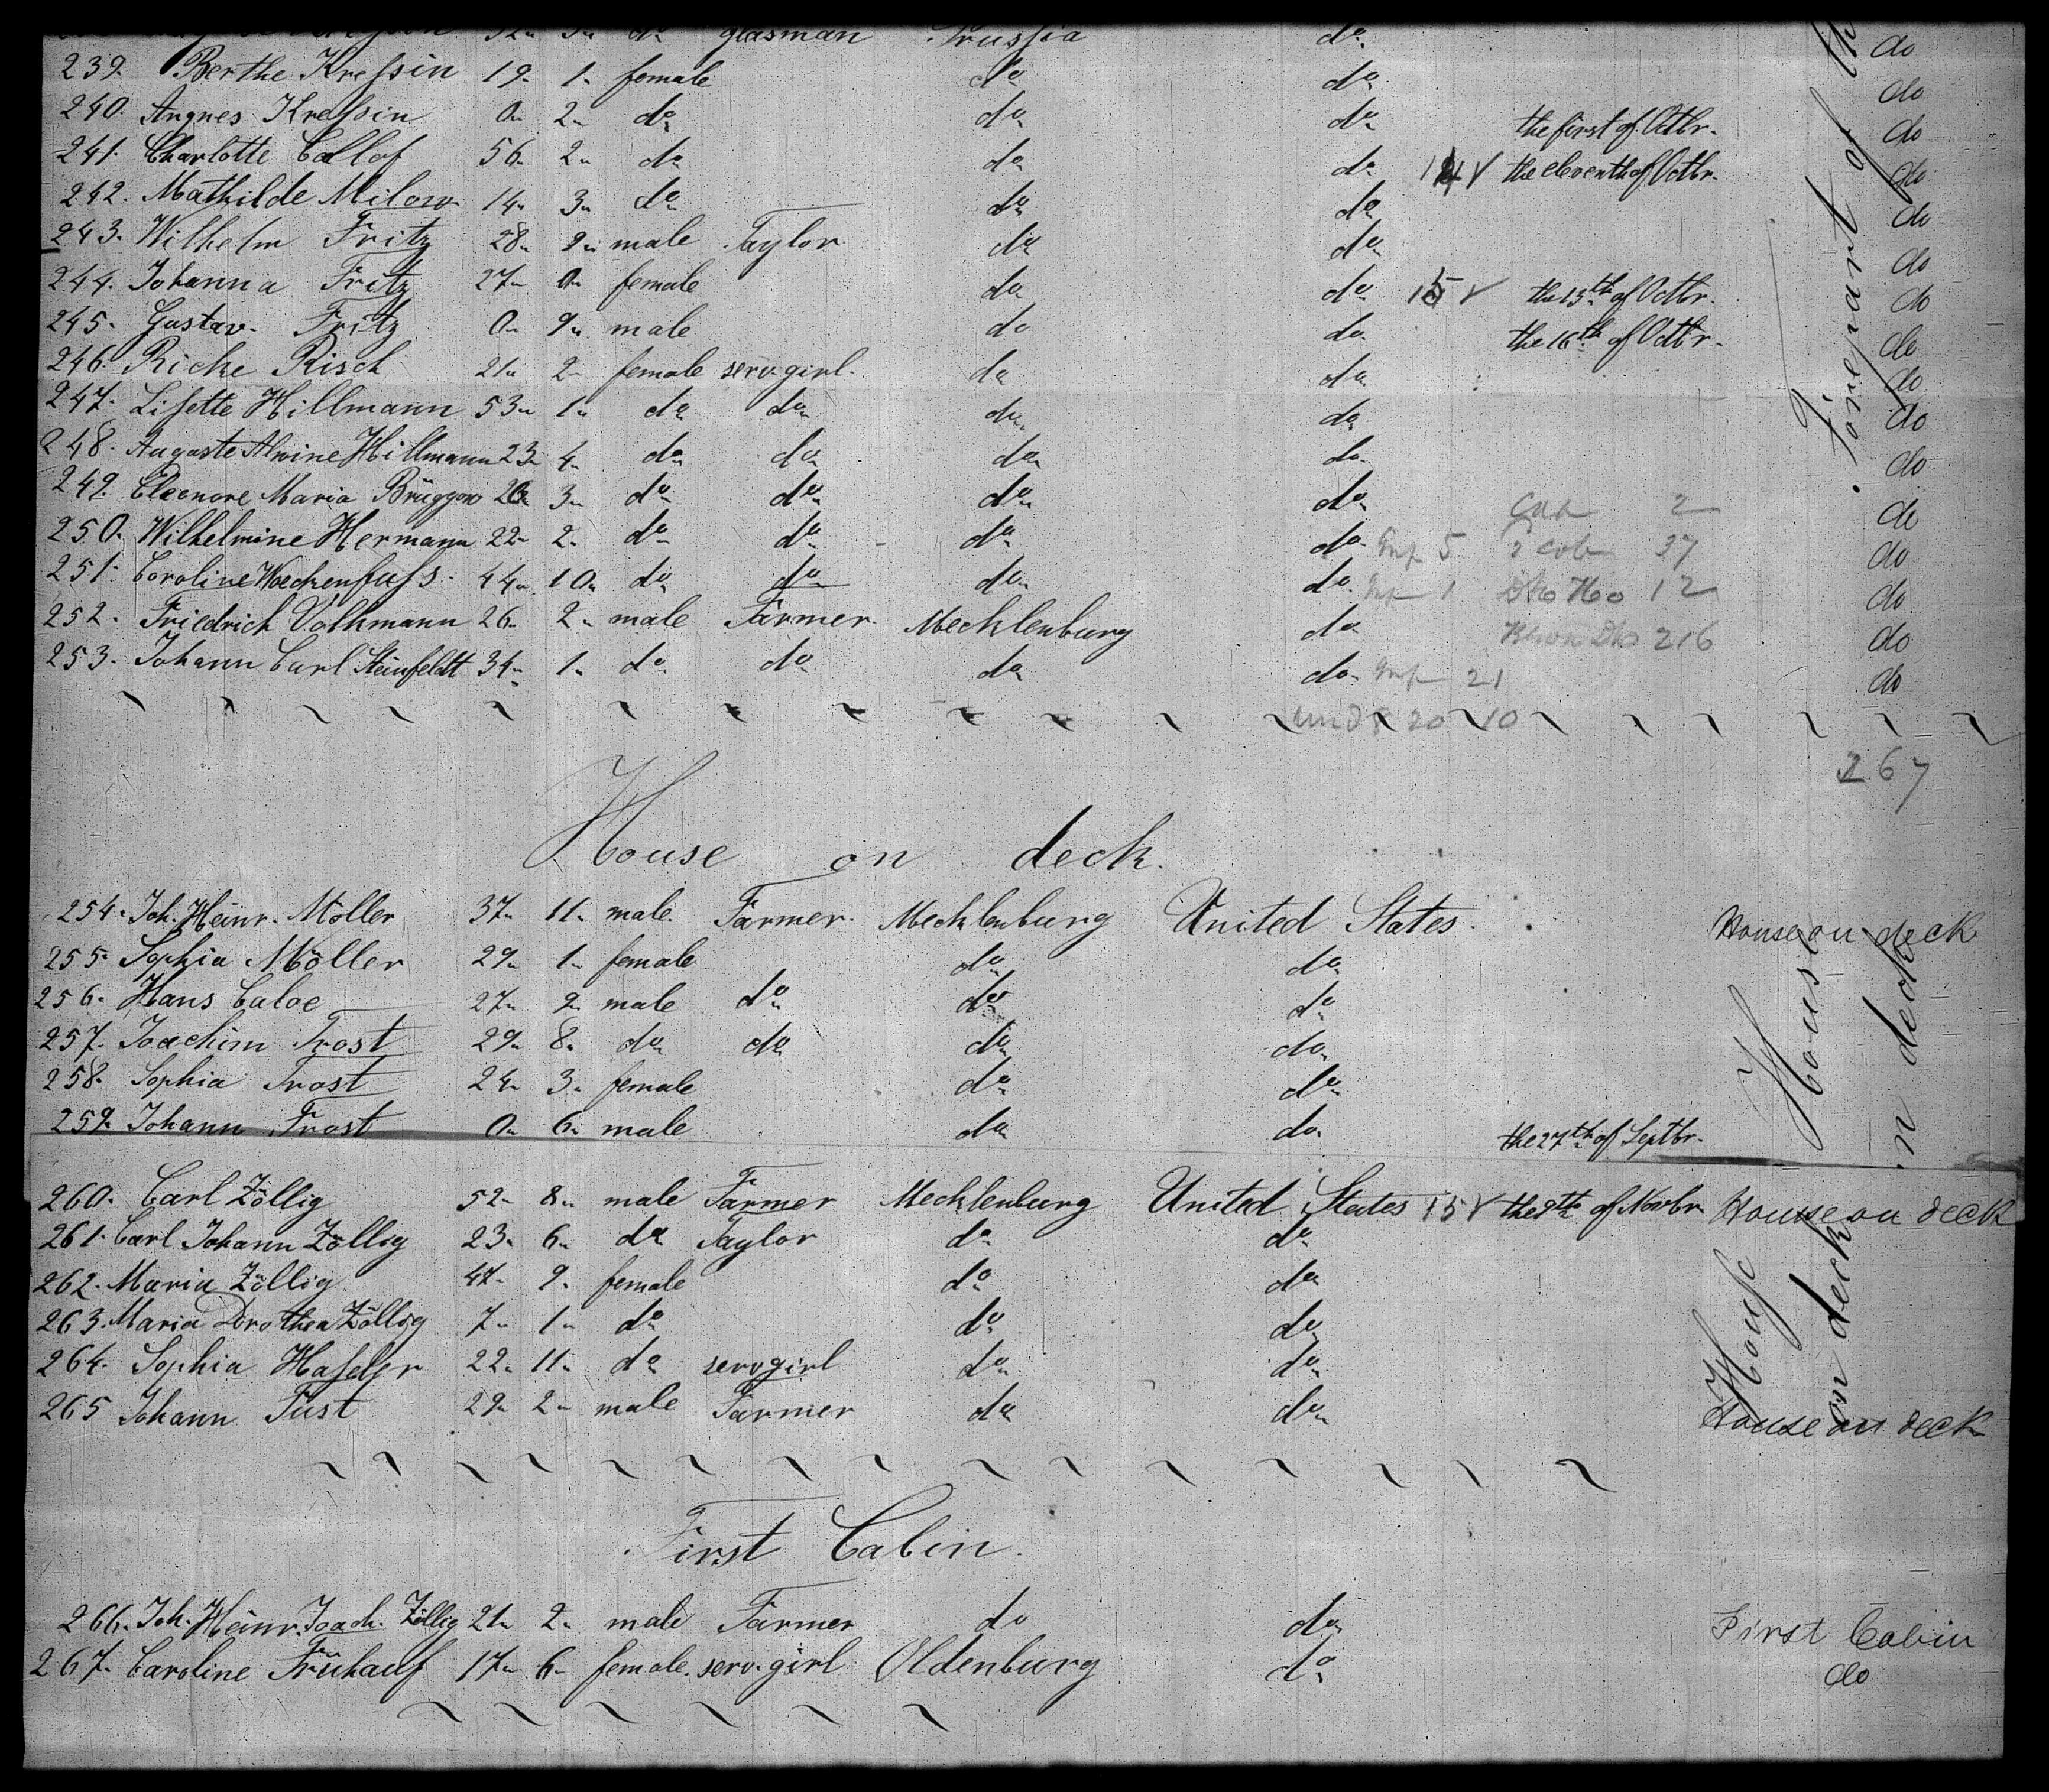 glasman Prussia do do
239. Berthe Kressin 19 1 female do do do
240. Angnes Kressin 0 2 do do do the first of Octbr. do
241. Charlotte Collof 56 2 do do do 14 V the eleventh of Octbr. do
242. Mathilde Milow 14 3 do do do do
243. Wilhelm Fritz 28 9 male Taylor do do do
244. Johanna Fritz 27 0 female do do 15 V the 15th of Octbr. do
245. Gustav. Fritz 0 9 male do do the 16th of Octbr. do
246. Ricke Risch 21 2 female serv. girl do do do
247. Lisette Hillmann 53 1 do do do do do
248. Auguste Alwine Hillmann 23 4 do do do do do
249. Eleonore Maria Brüggow 20 3 do do do do 2 do
250. Wilhelmine Hermann 22 2 do do do do 5 2 cob 37 do
251. Caroline Woeckenfuss 44 10 do do do do 1 12 do
252. Friedrich Volkmann 26 2 male Farmer Mecklenburg do 216 do
253. Johann Carl Steinfeldt 34 1 do do do do 21 do
20 10
267
Forepart of the
House on deck.
254. Joh. Heinr. Möller 37 11 male Farmer Mecklenburg United States. House on deck
255. Sophia Möller 29 1 female do do
256. Hans Caloe 27 9 male do do do
257. Joachim Trost 29 8 do do do do
258. Sophia Trost 24 3 female do do
259. Johann Trost 0 6 male do do the 27th of Septbr.
House on deck
260. Carl Zöllig 52 8 male Farmer Mecklenburg United States 15 V the 9th of Novbr House on deck
261. Carl Johann Zöllig 23 6 do Taylor do do
262. Maria Zöllig 47 9 female do do
263. Maria Dorothea Zöllig 7 1 do do do
264. Sophia Haseler 22 11 do serv girl do do
265 Johann Just 29 2 male Farmer do do House on deck
House on deck
First Cabin.
266. Joh. Heinr. Joach. Zöllig 21 2 male Farmer do do First Cabin
267. Caroline Frühauf 17 6 female serv. girl Oldenburg do do